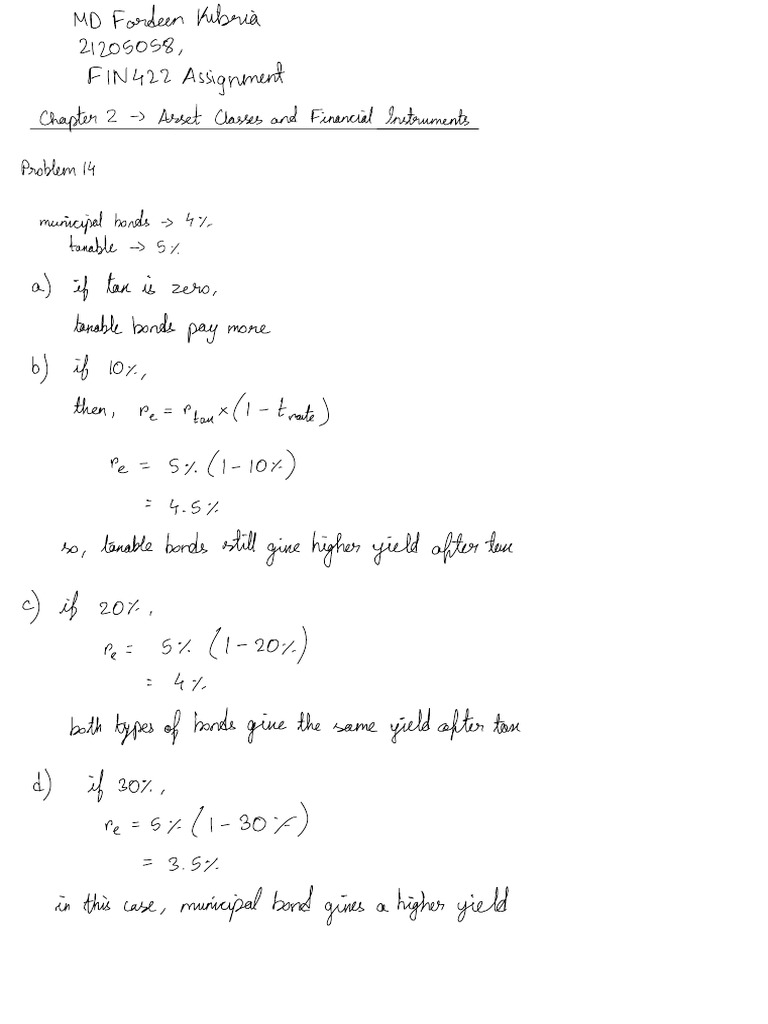 MD Fardeen Kibria
21205058,
FIN422 Assignment
Chapter 2 → Asset Classes and Financial Instruments
Problem 14
municipal bonds → 4%
taxable → 5%
a) if tax is zero,
taxable bonds pay more
b) if 10%,
then, r_e = r_tax × (1 - t_rate)
r_e = 5% (1-10%)
= 4.5%
so, taxable bonds still give higher yield after tax
c) if 20%,
r_e = 5% (1-20%)
= 4%
both types of bonds give the same yield after tax
d) if 30%,
r_e = 5% (1-30%)
= 3.5%
in this case, municipal bond gives a higher yield